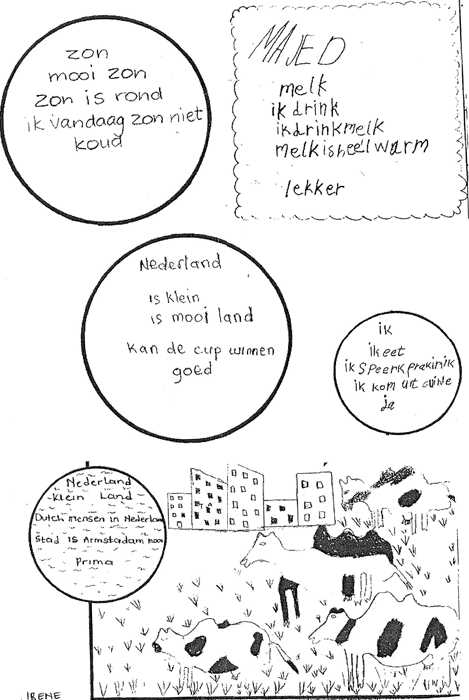 zon
mooi zon
zon is rond
ik vandaag zon niet
koud
MAJED
melk
ik drink
ikdrinkmelk
melkisheelwarm
lekker
Nederland
is klein
is mooi land
kan de cup winnen
goed
ik
ik eet
ik speerk prakinik
ik kom uit
ja
Nederland
Klein Land
Dutch mensen in Nederland
Stad is Armstadam mooi
Prima
IRENE